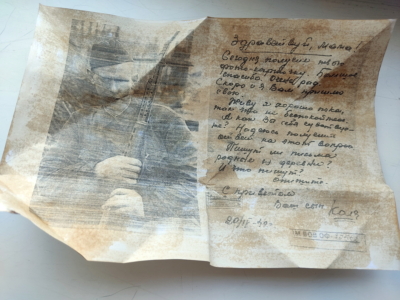 Здравствуй, мама!
Сегодня получил твою
фото-карточку. Большое
спасибо. Очень рад.
Скоро и я Вам пришлю
свою.
Живу я хорошо пока,
так что не беспокойтесь.
А как Вы себя чувствуе-
те? Надеюсь получить
ответ на этот вопрос.
Пишут ли письма
родные из деревни?
И что пишут?
опишите.
С приветом
Ваш сын Коля